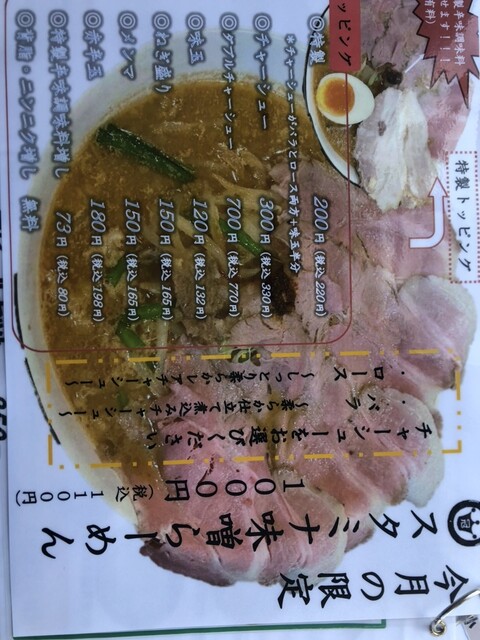 今月の限定
スタミナ味噌らーめん
1000円
(税込1100円)
チャーシューをお選びください
・バラ
～柔らか仕立て煮込みチャーシュー～
・ロース
～しっとり柔らかレアチャーシュー～
特製トッピング
製辛味調味料
せます!!!
有料)
トッピング
◎特製 200円(税込 220円)
※チャーシューがバラとロース両方+味玉半分
◎チャーシュー 300円(税込 330円)
◎ダブルチャーシュー 700円(税込 770円)
◎味玉 120円(税込 132円)
◎ねぎ盛り 150円(税込 165円)
◎メンマ 150円(税込 165円)
◎赤辛玉 180円(税込 198円)
◎特製辛味調味料増し 73円(税込 80円)
◎背脂・ニンニク増し 無料